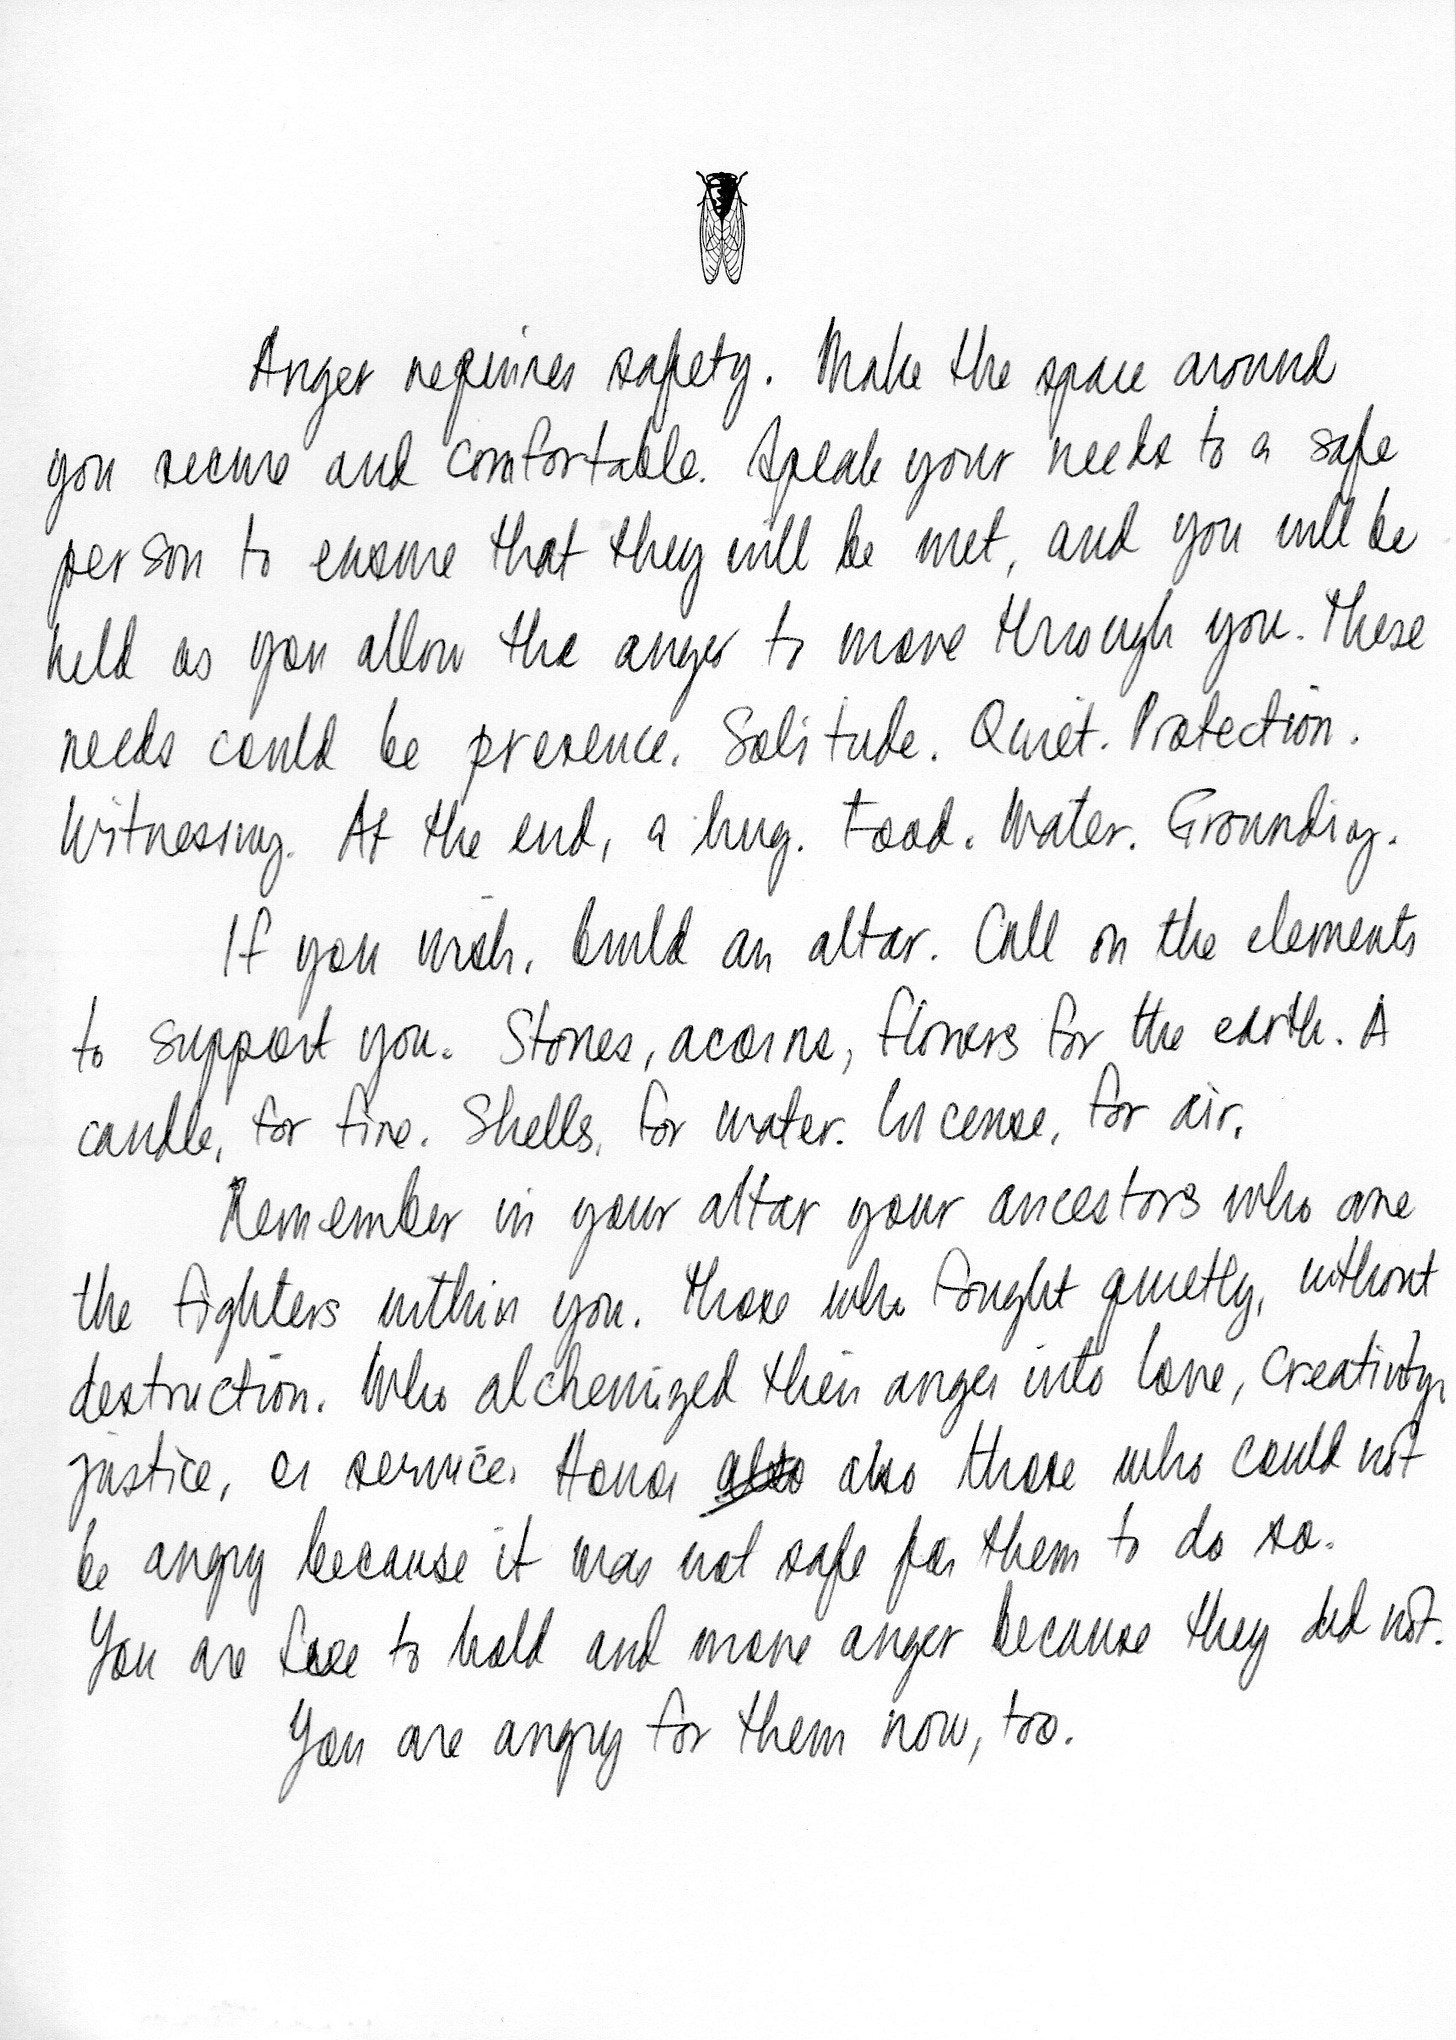 Anger requires safety. Make the space around
you secure and comfortable. Speak your needs to a safe
person to ensure that they will be met, and you will be
held as you allow the anger to move through you. These
needs could be presence. Solitude. Quiet. Protection.
Witnessing. At the end, a hug. Food. Water. Grounding.
If you wish, build an altar. Call on the elements
to support you. Stones, acorns, flowers for the earth. A
candle, for fire. Shells, for water. Incense, for air.
Remember in your altar your ancestors who are
the fighters within you. Those who fought quietly, without
destruction. Who alchemized their anger into love, creativity,
justice, or service. Honor also also those who could not
be angry because it was not safe for them to do so.
You are free to hold and move anger because they did not.
You are angry for them now, too.